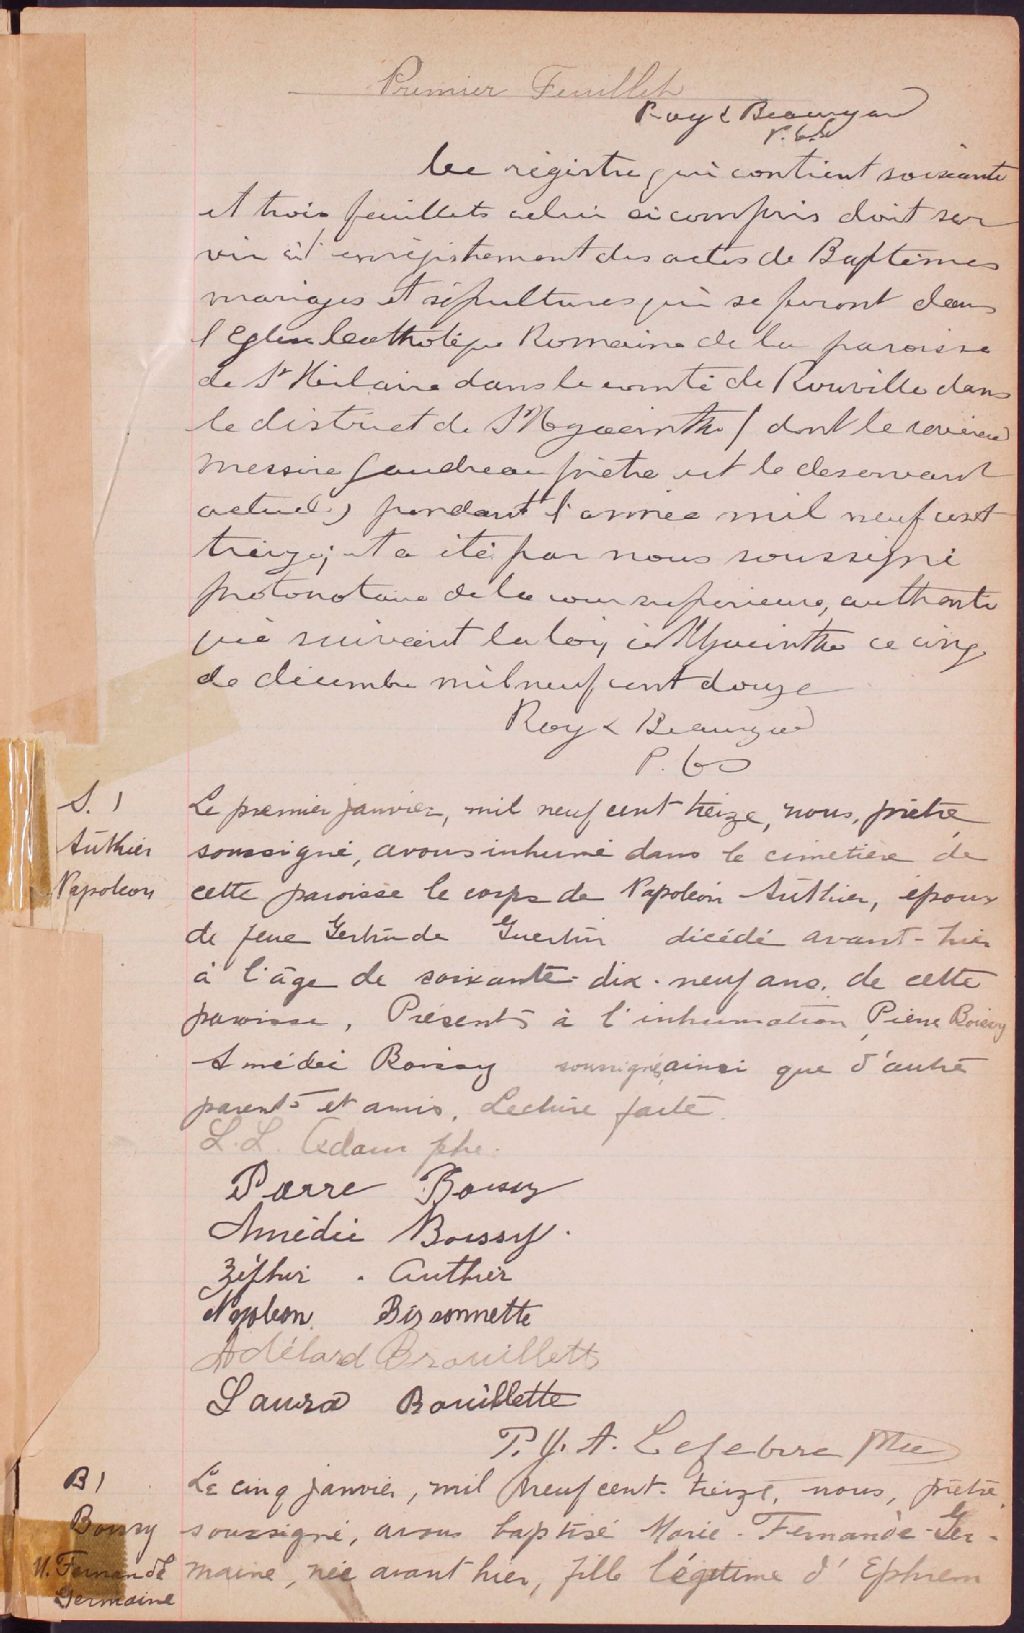 Premier Feuillet
Roy & Beauregard
P.C.S.
Ce régistre qui contient soixante
et trois feuillets celui ci compris doit ser
vir à l'enrégistrement des actes de Baptêmes
mariages et sépultures qui se feront dans
l'Eglise Catholique Romaine de la paroisse
de St Hilaire dans le comté de Rouville dans
le district de St Hyacinthe (dont le révérend
messire Gaudreau prêtre est le desservant
actuel) pendant l'année mil neuf cent
treize; et a été par nous soussigné
protonotaire de la cour supérieure, authenti
qué suivant la loi, à St Hyacinthe ce cinq
de décembre mil neuf cent douze
Roy & Beauregard
P.C.S.
S. 1
Authier
Napoléon
Le premier janvier, mil neuf cent treize, nous, prêtre
soussigné, avons inhumé dans le cimetière de
cette paroisse le corps de Napoléon Authier, époux
de feue Gertrude Guertin décédé avant-hier
à l'âge de soixante-dix-neuf ans, de cette
paroisse. Présents à l'inhumation Pierre Boissy
Amédée Boissy soussignés, ainsi que d'autre
parents et amis. Lecture faite.
L. L. Adam ptre.
Pierre Boissy
Amédée Boissy.
Zéphir. Authier
Napoleon Bissonnette
Adélard Brouillette
Laura Bouillette
P. Y. A. Lefebvre Ptre
B 1
Boissy
M. Fernande
Germaine
Le cinq janvier, mil neuf cent-treize, nous, prêtre
soussigné, avons baptisé Marie-Fernande-Ger-
maine, née avant hier, fille légitime d'Ephrem